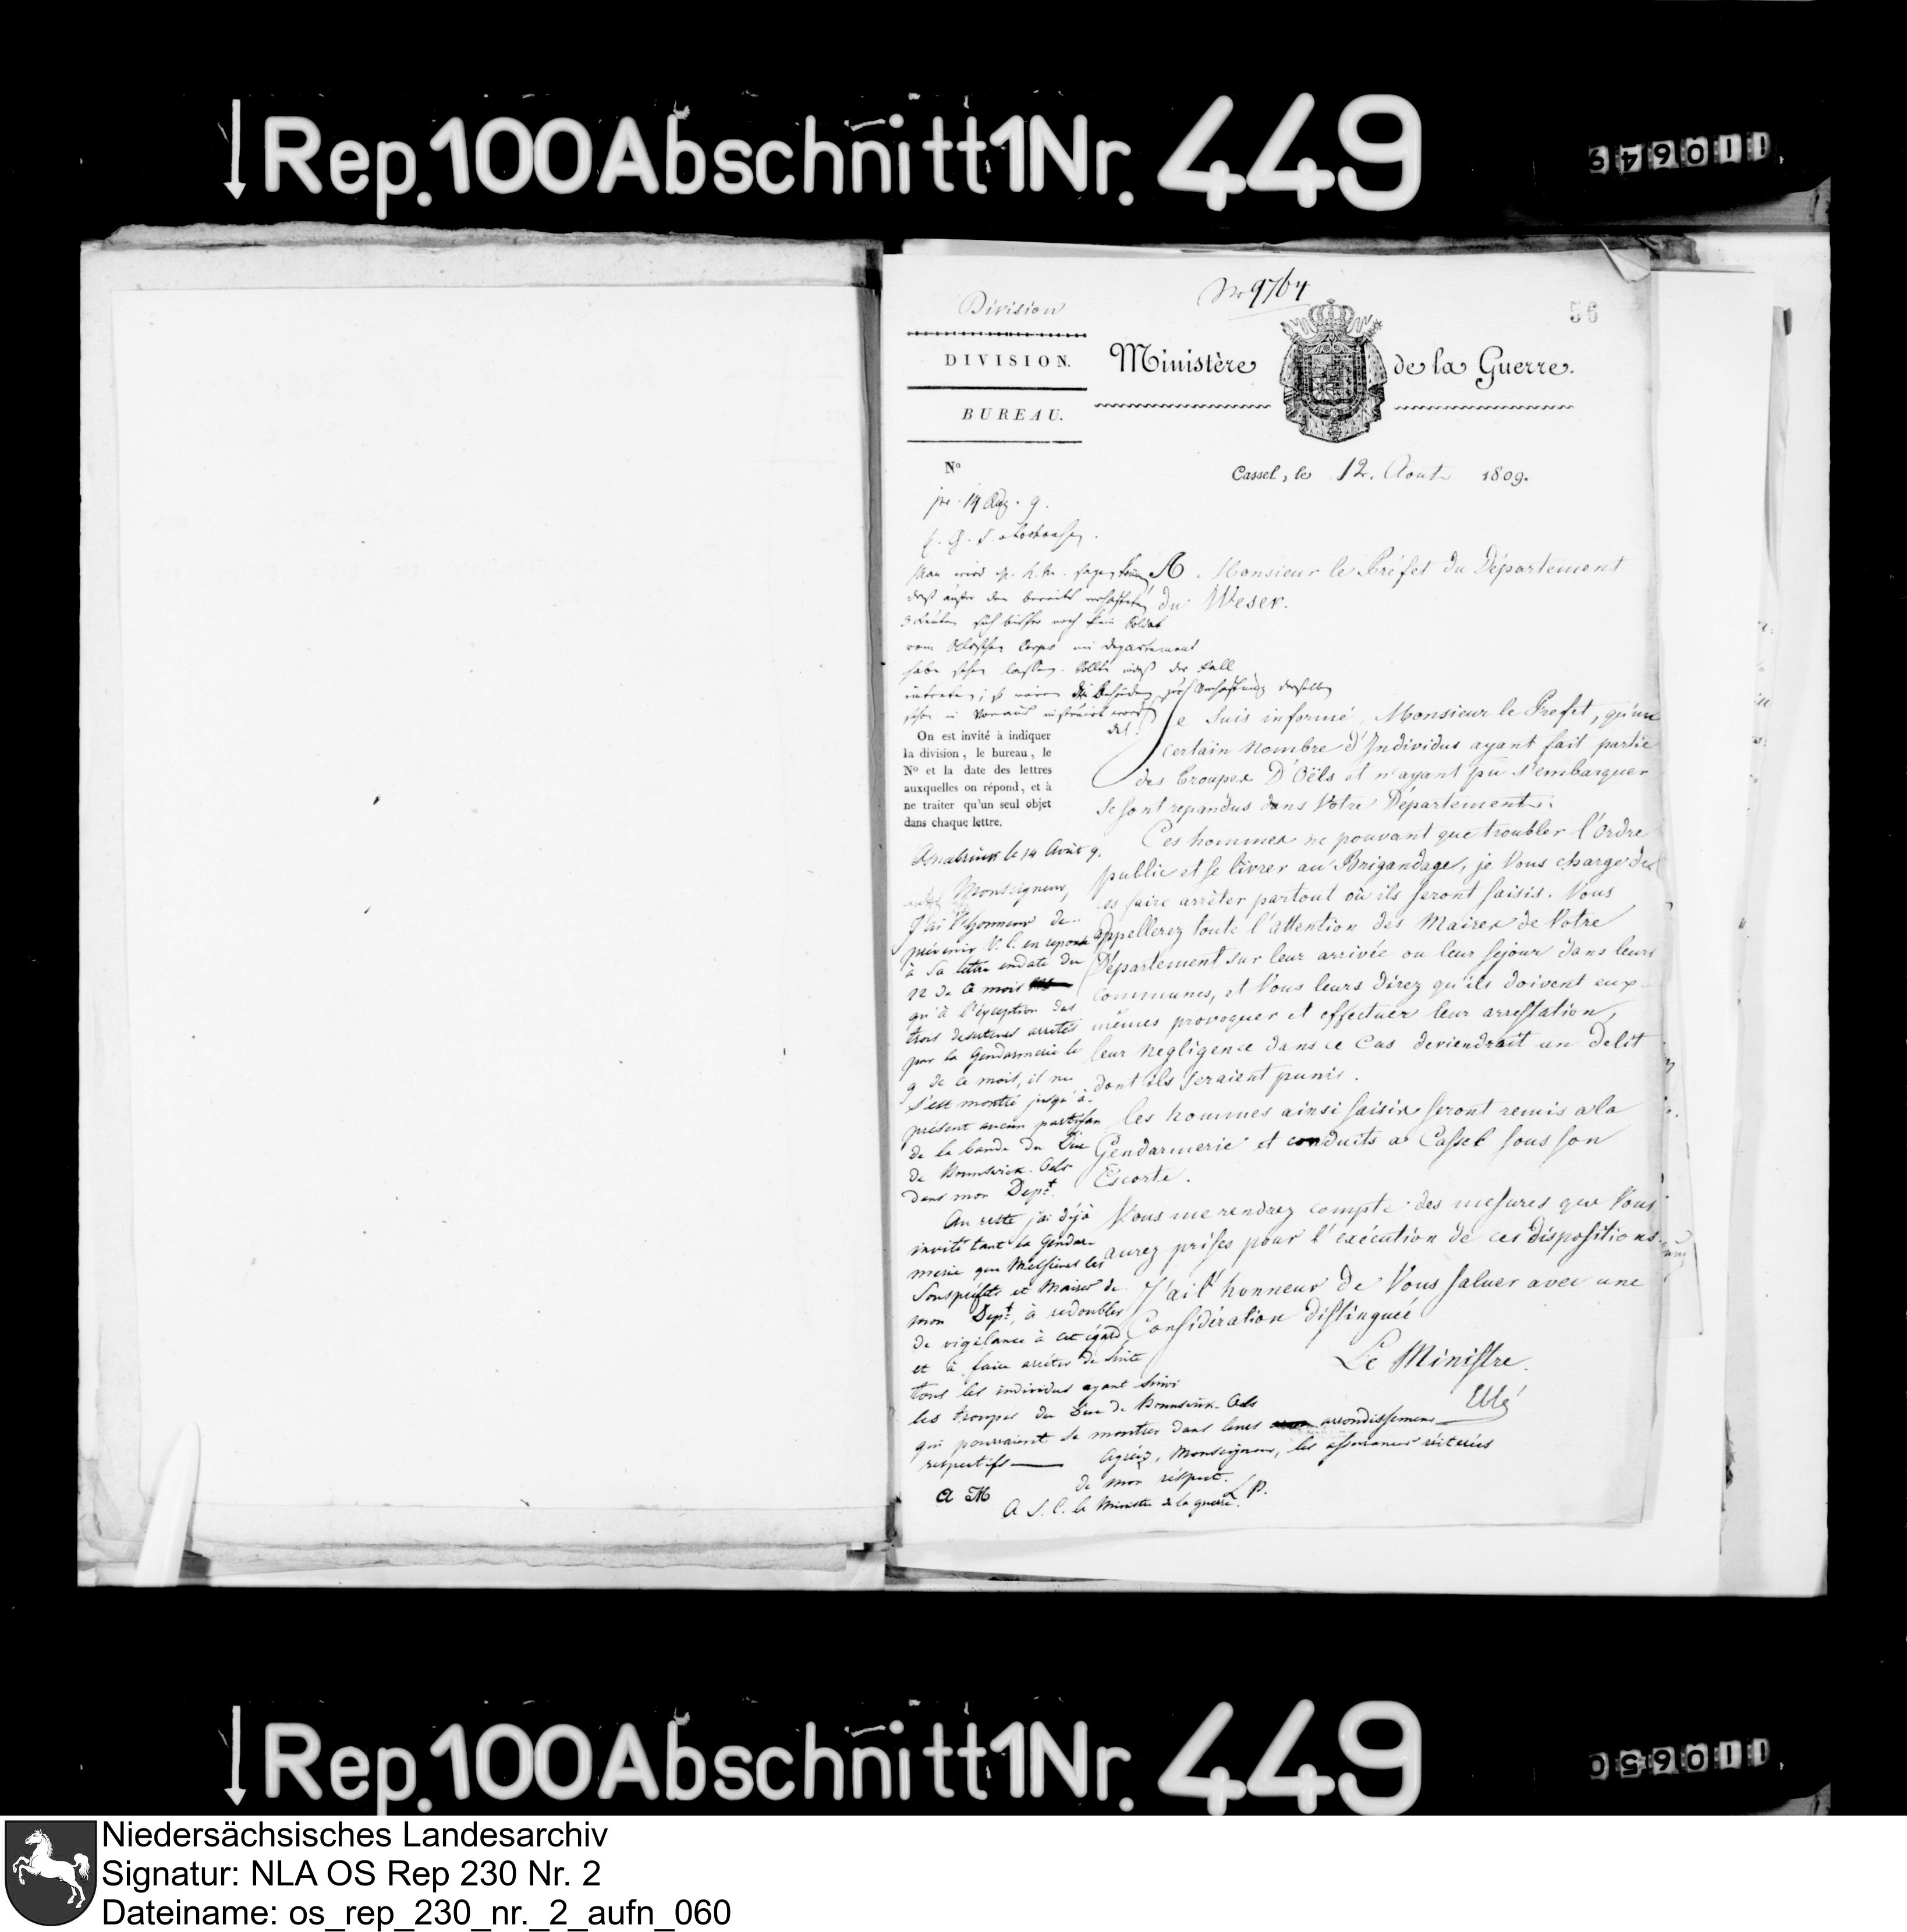 Rep. 100 Abschnitt 1 Nr. 449
110649
No 9764
56
Division
DIVISION.
BUREAU.
Ministère de la Guerre.
No
Cassel, le 12. Aout 1809.
pr. 14 Aug. 9.
A Monsieur le Préfet du Département
du Weser.
Man wird
daß außer den bereits verhafteten
3 Leuten sich bisher noch kein Soldat
vom Oelsschen Corps im Departement
habe sehen lassen. Sollte indeß der Fall
eintreten; so wären die Behörden zur Verhaftung derselben
schon im Voraus instruirt worden
Je Suis informé, Monsieur le Prefet, qu'un
certain nombre d'Individus ayant fait partie
des Troupes D'Oëls et n'ayant pu s'embarquer
Se sont repandus dans Votre Département.
Ces hommes ne pouvant que troubler l'Ordre
public et se livrer au Brigandage, je Vous charge de
les faire arrêter partout où ils seront saisis. Vous
appellerez toute l'attention des Maires de Votre
Département sur leur arrivée ou leur sejour dans leurs
Communes, et Vous leurs direz qu'ils doivent eux-
mêmes provoquer et effectuer leur arrestation,
leur negligence dans ce Cas deviendrait un Delit
dont ils seraient punis.
Les hommes ainsi saisis seront remis a la
Gendarmerie et conduits a Cassel sous son
Escorte.
Vous me rendrez compte des mesures que Vous
aurez prises pour l'exécution de ces dispositions.
J'ai l'honneur de Vous saluer avec une
Considération distinguée
Le Ministre
Eblé
On est invité à indiquer
la division, le bureau, le
No et la date des lettres
auxquelles on répond, et à
ne traiter qu'un seul objet
dans chaque lettre.
Osnabruck le 14 Août 9.
Monseigneur,
J'ai l'honneur de
prévenir V. E. en reponse
à Sa lettre en date du
12 de ce mois
qu'à l'exception des
trois deserteurs arretés
par la Gendarmerie le
9 de ce mois, il ne
s'est montré jusqu'à
présent aucun partisan
de la bande du Duc
de Brunswick-Oels
dans mon Dept.
Au reste j'ai déjà
invité tant la Gendar-
merie que Messieurs les
Souspréfets et Maires de
mon Dept, à redoubler
de vigilance à cet égard
et à faire arrêter de suite
tous les individus ayant suivi
les troupes du Duc de Brunswick-Oels
qui pourraient se montrer dans leurs arrondissemens
respectifs — Agréez, Monseigneur, les assurances réiterées
de mon réspect.
L. P.
A S. E. le Ministre de la guerre.
Rep. 100 Abschnitt 1 Nr. 449
110650
Niedersächsisches Landesarchiv
Signatur: NLA OS Rep 230 Nr. 2
Dateiname: os_rep_230_nr._2_aufn_060